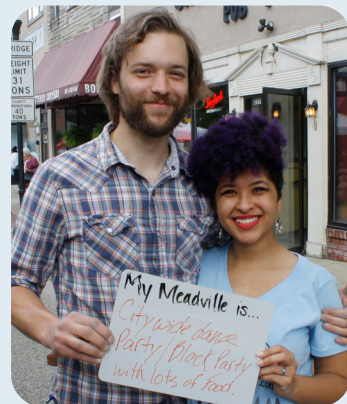 PUB
RIDGE
EIGHT
IMIT
31
ONS
40
TONS
BO
My Meadville is...
City wide dance
Party/Block Party
with lots of food.